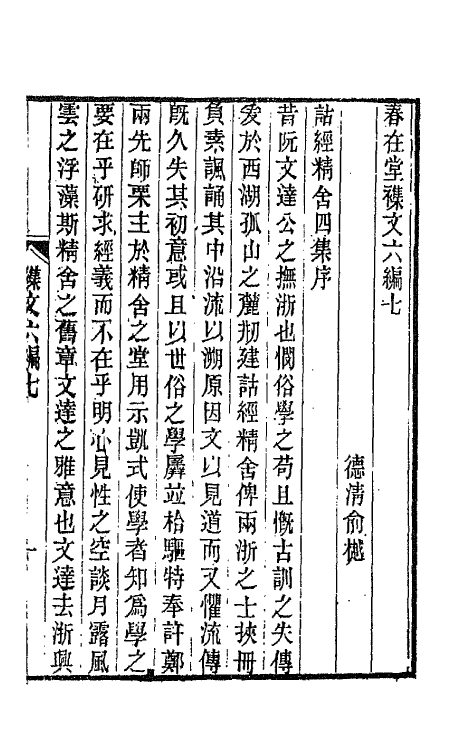 春在堂襍文六編七
德清俞樾
詁經精舍四集序
昔阮文達公之撫浙也憫俗學之苟且慨古訓之失傳
爰於西湖孤山之麓刱建詁經精舍俾兩浙之士挾冊
負素諷誦其中沿流以溯原因文以見道而又懼流傳
旣久失其初意或且以世俗之學羼並枱驅特奉許鄭
兩先師栗主於精舍之堂用示凱式使學者知爲學之
要在乎研求經義而不在乎明心見性之空談月露風
雲之浮藻斯精舍之舊章文達之雅意也文達去浙興
襍文六編七
一